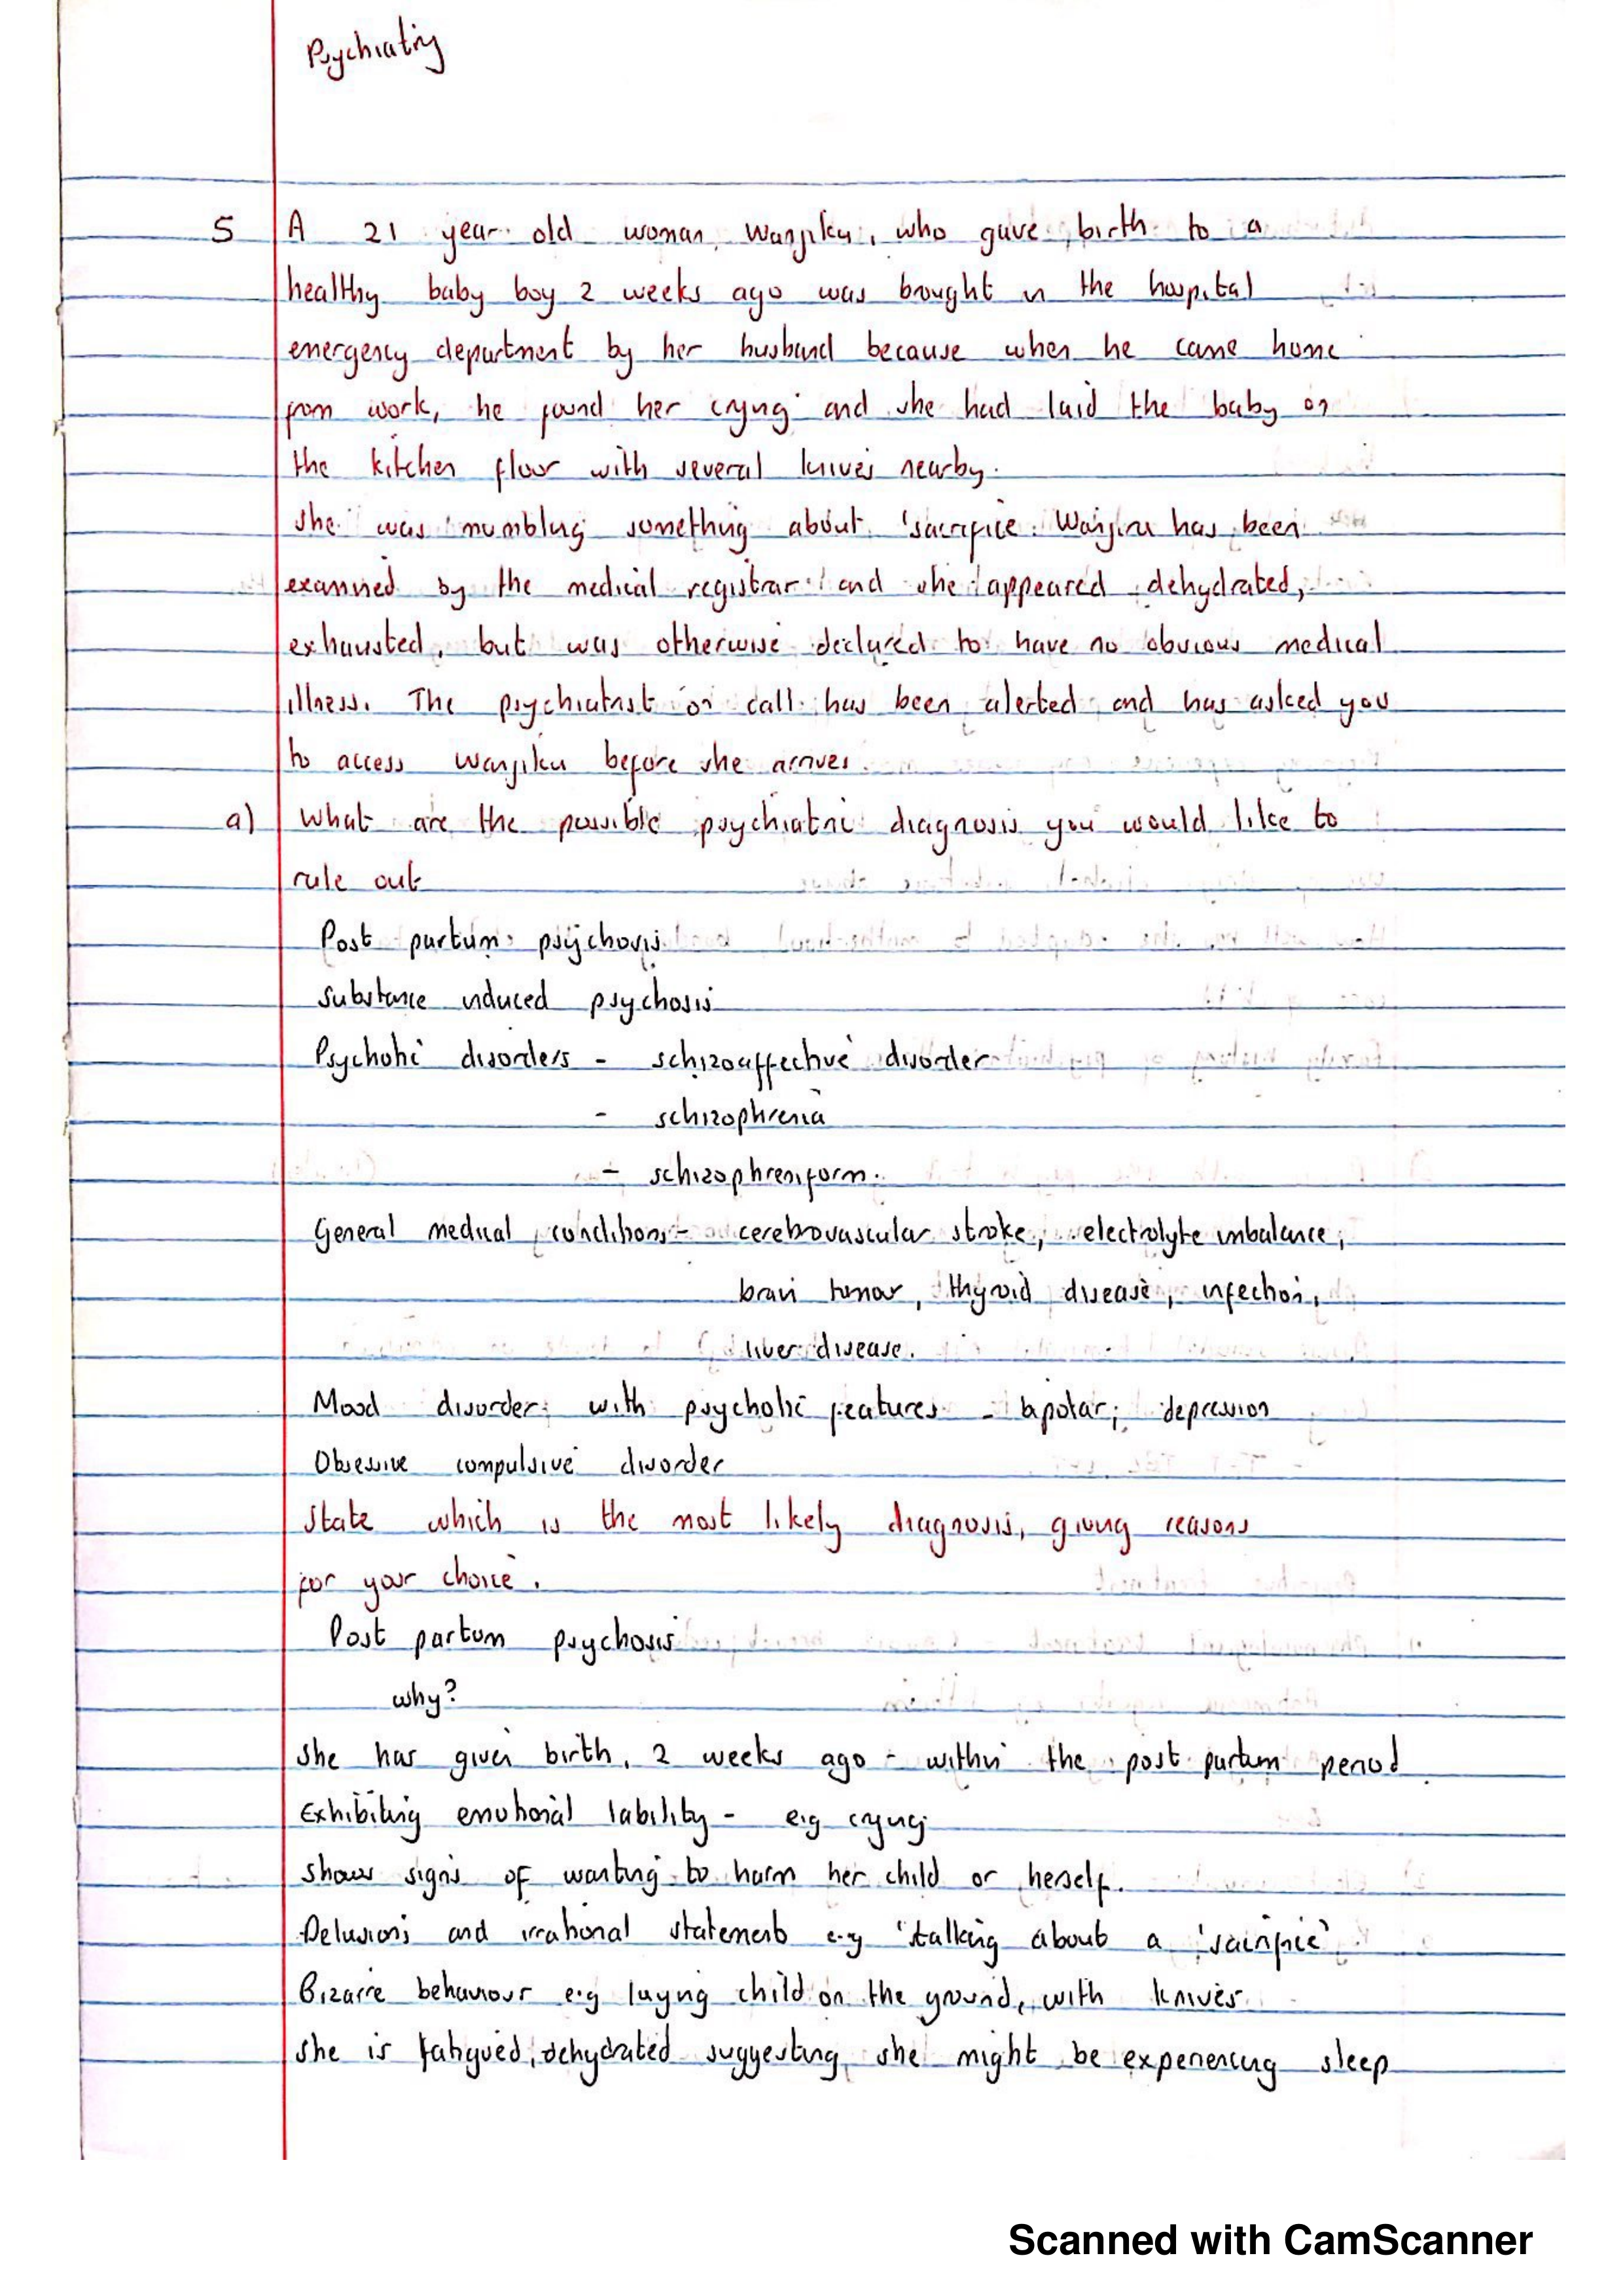 Psychiatry
5 A 21 year old woman, Wanjiku, who gave birth to a
healthy baby boy 2 weeks ago was brought in the hospital
emergency department by her husband because when he came home
from work, he found her crying and she had laid the baby on
the kitchen floor with several knives nearby.
She was mumbling something about 'sacrifice. Wanjiru has been
examined by the medical registrar and she appeared dehydrated,
exhausted, but was otherwise declared to have no obvious medical
illness. The psychiatrist on call has been alerted and has asked you
to access Wanjiku before she arrives.
a) What are the possible psychiatric diagnosis you would like to
rule out
Post partum psychosis
Substance induced psychosis
Psychotic disorders - schizoaffective disorder
- schizophrenia
- schizophreniform.
General medical conditions - cerebrovascular stroke, electrolyte imbalance,
brain tumor, thyroid disease, infection,
liver disease.
Mood disorder with psychotic features - bipolar, depression
Obsessive compulsive disorder
State which is the most likely diagnosis, giving reasons
for your choice.
Post partum psychosis
why?
She has given birth, 2 weeks ago - within the post partum period
Exhibiting emotional lability - e.g crying
Shows signs of wanting to harm her child or herself.
Delusions and irrational statements e.g 'talking about a 'sacrifice'
Bizarre behaviour e.g laying child on the ground, with knives
She is fatigued, dehydrated suggesting she might be experiencing sleep
Scanned with CamScanner